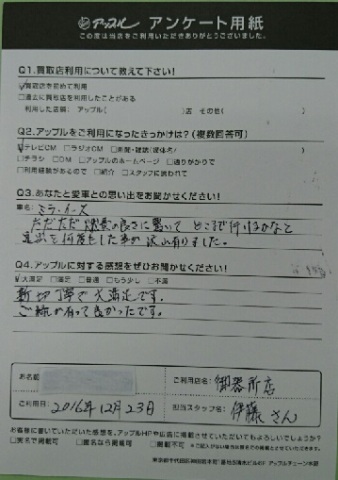 アップル アンケート用紙
この度は当店をご利用いただきありがとうございました。
Q1.買取店利用について教えて下さい!
買取店を初めて利用
□過去に買取店を利用したことがある
利用した店舗: アップル( )店 その他( )
Q2.アップルをご利用になったきっかけは?(複数回答可)
テレビCM □ラジオCM □新聞・雑誌(媒体名/ )
□チラシ □DM □アップルのホームページ □通りがかりで
□利用経験があるので □紹介 □スタッフに誘われて
Q3.あなたと愛車との思い出をお聞かせください!
車名: ミラ・イース
ただただ燃費の良さに驚いて どこまで行けるかなと
を何度もした事が沢山有りました。
Q4.アップルに対する感想をぜひお聞かせください!
大満足 □満足 □普通 □もう少し □不満
親切丁寧で大満足です。
ご縁が有って良かったです。
お名前
ご利用店名: 御器所店
ご利用日: 2016年12月23日
担当スタッフ名: 伊藤さん
お客様に書いていただいた感想を、アップルHPや広告に掲載させていただいてもよろしいでしょうか?
□実名で掲載可 □匿名なら掲載可 □掲載不可
アップルチェーン本部